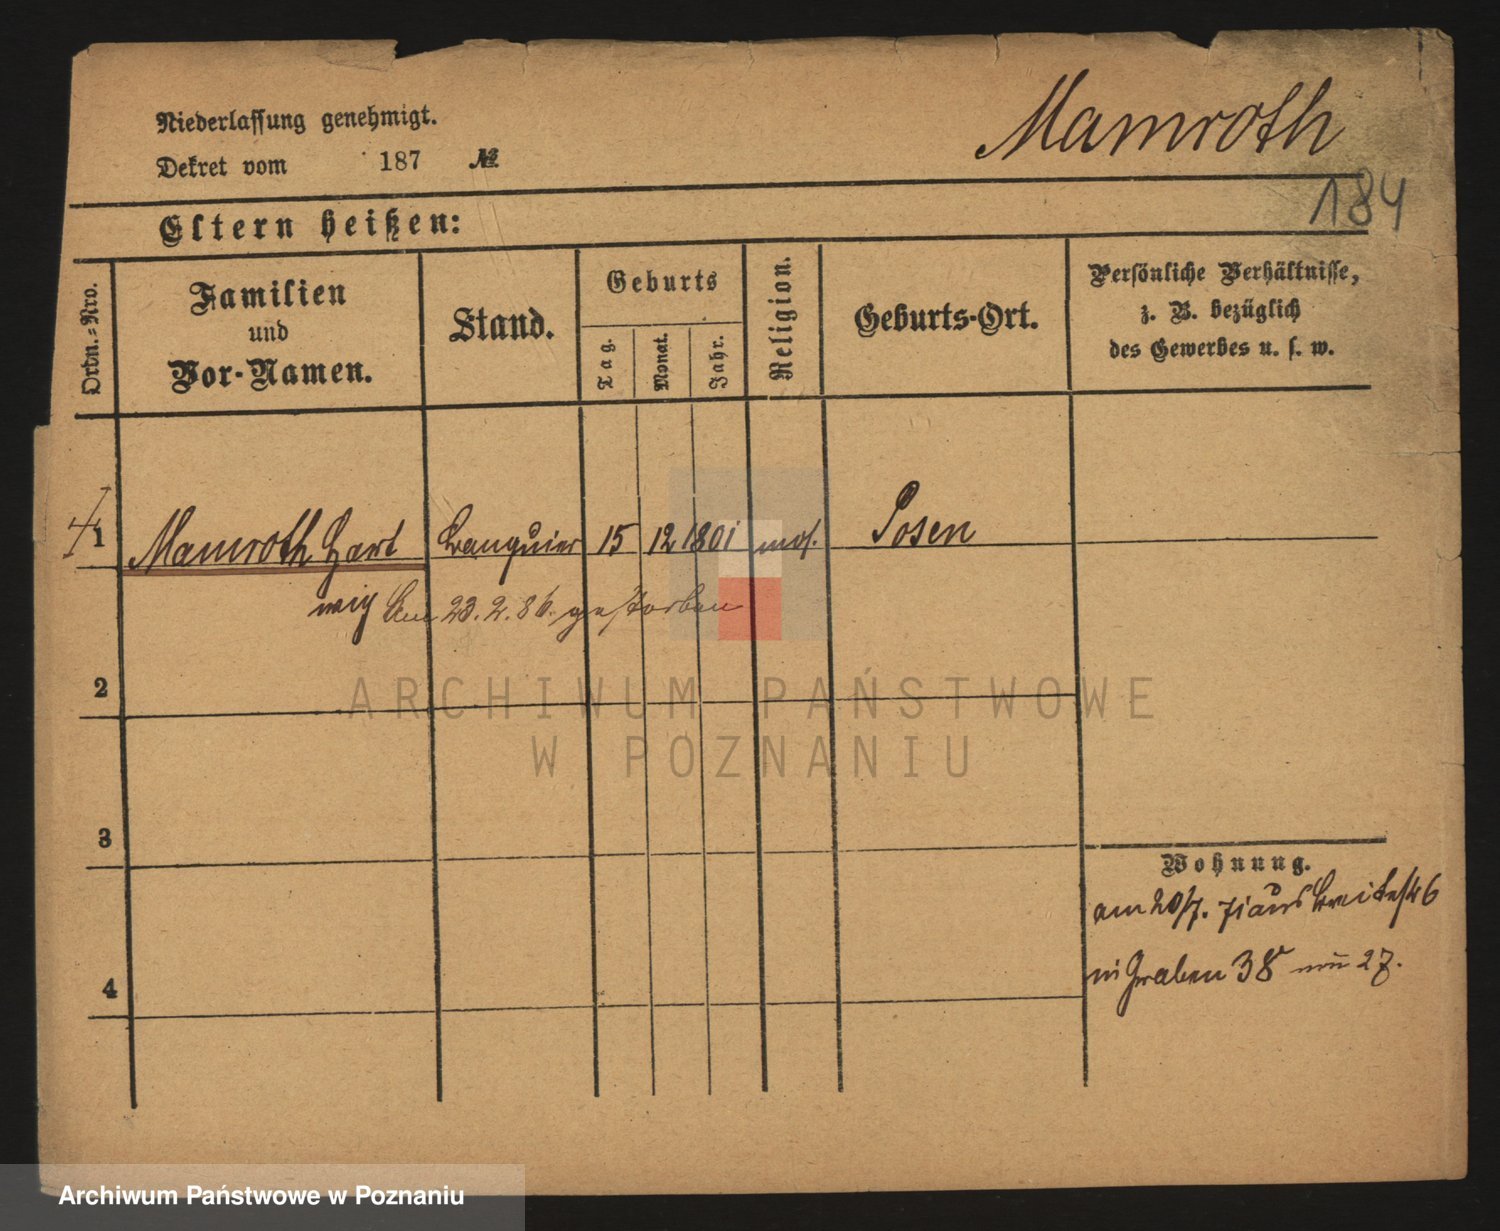 Niederlassung genehmigt.
Dekret vom 187 №
Mamroth
184
Eltern heißen:
Ordn.-Nro.
Familien
und
Vor-Namen.
Stand.
Geburts
Tag.
Monat.
Jahr.
Religion.
Geburts-Ort.
Persönliche Verhältnisse,
z. B. bezüglich
des Gewerbes u. s. w.
1 Mamroth Hart Banquier 15 12 1801 mos. Posen
wig Am 23.2.86. gestorben
2
ARCHIWUM PAŃSTWOWE
W POZNANIU
3
Wohnung.
am 20/7. 71 aus Breitestr 6
in Graben 38 nun 27.
4
Archiwum Państwowe w Poznaniu